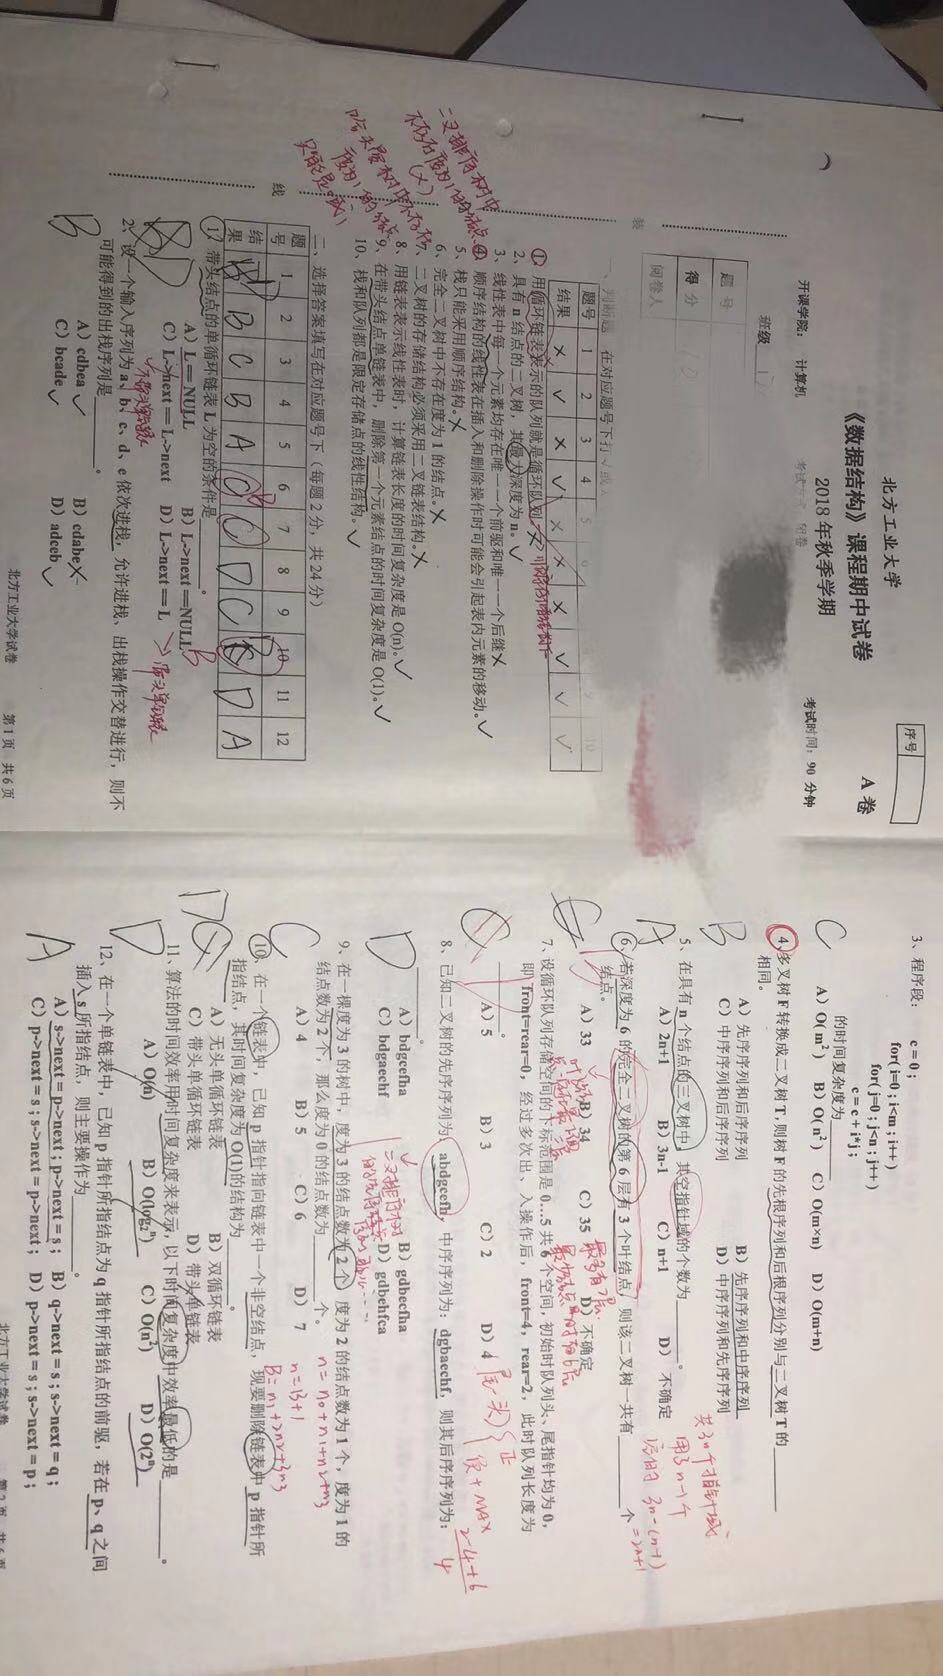 序号
北方工业大学
《数据结构》课程期中试卷
A 卷
2018 年秋季学期
开课学院： 计算机 考试方式 闭卷 考试时间：90 分钟
班级
题 号
得 分
阅卷人
装
线
一、判断题 在对应题号下打√或
题号 1 2 3 4 5 6 7 8 9 10
结果 × √ × √ × × × √ √ √
①、用循环链表表示的队列就是循环队列。×
2、具有 n 结点的二叉树，其最大深度为 n。√
3、线性表中每一个元素均存在唯一一个前驱和唯一一个后继×
④、顺序结构的线性表在插入和删除操作时可能会引起表内元素的移动。√
5、栈只能采用顺序结构。×
6、完全二叉树中不存在度为 1 的结点。×
7、二叉树的存储结构必须采用二叉链表结构。×
8、用链表表示线性表时，计算链表长度的时间复杂度是 O(n)。√
9、在带头结点单链表中，删除第一个元素结点的时间复杂度是 O(1)。√
10、栈和队列都是限定存储点的线性结构。√
二叉排序树中
不存在度为1的结点
(×)
哈夫曼树中不存在
度为1的结点
只能是0或2
二、选择答案填写在对应题号下（每题 2 分，共 24 分）
题号 1 2 3 4 5 6 7 8 9 10 11 12
结果 D B C B A B C D C B D A
①、带头结点的单循环链表 L 为空的条件是________。
A）L== NULL B）L->next ==NULL
C）L->next == L->next D）L->next == L
BD
2、设一个输入序列为 a、b、c、d、e 依次进栈，允许进栈、出栈操作交替进行，则不
可能得到的出栈序列是________。
A）cdbea √ B）cdabe ×
C）bcade √ D）adceb √
B
北方工业大学试卷 第 1 页 共 6 页
3、程序段： c = 0 ;
for( i=0 ; i<m ; i++ )
for( j=0 ; j<n ; j++ )
c = c + i*j ;
的时间复杂度为________
A）O( m² ) B）O( n² ) C）O(m×n) D）O(m+n)
C
④、多叉树 F 转换成二叉树 T，则树 F 的先根序列和后根序列分别与二叉树 T 的________
相同。
A）先序序列和后序序列 B）先序序列和中序序列
C）中序序列和后序序列 D）中序序列和先序序列
B
5、在具有 n 个结点的三叉树中，其空指针域的个数为________。
A）2n+1 B）3n-1 C）n+1 D） 不确定
A
共3n个指针域
用了n-1个
空的 3n-(n-1)
=2n+1
⑥、若深度为 6 的完全二叉树的第 6 层有 3 个叶结点，则该二叉树一共有________个
结点。
A）33 B）34 C）35 D）不确定
7、设循环队列存储空间的下标范围是 0…5 共 6 个空间，初始时队列头、尾指针均为 0，
即 front=rear=0，经过多次出、入操作后，front=4，rear=2，此时队列长度为
________。
A）5 B）3 C）2 D）4
尾-头 正
负+MAX
2-4+6
4
8、已知二叉树的先序序列为：abdgcefh，中序序列为：dgbaechf，则其后序序列为：
________。
A）bdgcefha B）gdbecfha
C）bdgaechf D）gdbehfca
D
9、在一棵度为 3 的树中，度为 3 的结点数为 2 个，度为 2 的结点数为 1 个，度为 1 的
结点数为 2 个，那么度为 0 的结点数为________个。
A）4 B）5 C）6 D） 7
C
n = n0+n1+n2+n3
n=B+1
B=n1+2n2+3n3
⑩、在一个链表中，已知 p 指针指向链表中一个非空结点，现要删除链表中 p 指针所
指结点，其时间复杂度为 O(1)的结构为________。
A）无头单循环链表 B）双循环链表
C）带头单循环链表 D）带头单链表
11、算法的时间效率用时间复杂度来表示，以下时间复杂度中效率最低的是________。
A）O(n) B）O(log₂ⁿ) C）O(n²) D）O(2ⁿ)
D
12、在一个单链表中，已知 p 指针所指结点为 q 指针所指结点的前驱，若在 p、q 之间
插入 s 所指结点，则主要操作为________。
A）s->next = p->next ; p->next = s ; B）q->next = s ; s->next = q ;
C）p->next = s ; s->next = p->next ; D）p->next = s ; s->next = p ;
A
北方工业大学试卷 第 2 页 共 6 页